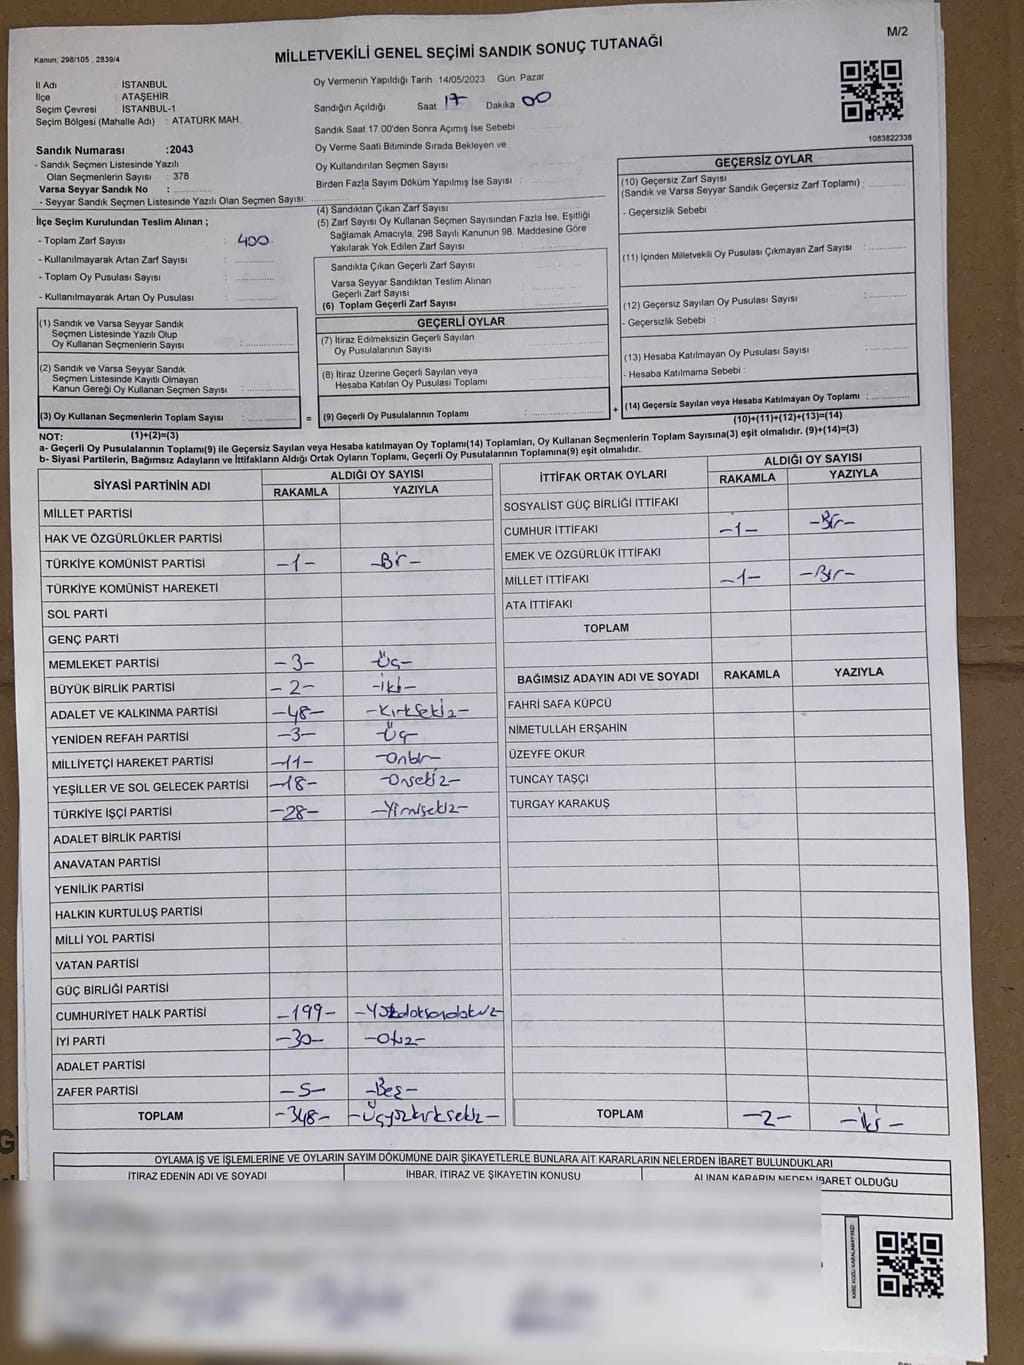 M/2
Kanun; 298/105 , 2839/4
MİLLETVEKİLİ GENEL SEÇİMİ SANDIK SONUÇ TUTANAĞI
İl Adı : İSTANBUL
İlçe : ATAŞEHİR
Seçim Çevresi : İSTANBUL-1
Seçim Bölgesi (Mahalle Adı) : ATATÜRK MAH.
Oy Vermenin Yapıldığı Tarih 14/05/2023 Gün Pazar
Sandığın Açıldığı Saat 17 Dakika 00
Sandık Saat 17.00'den Sonra Açımış İse Sebebi
Oy Verme Saati Bitiminde Sırada Bekleyen ve
Oy Kullandırılan Seçmen Sayısı
Birden Fazla Sayım Döküm Yapılmış İse Sayısı :
1083822338
Sandık Numarası :2043
- Sandık Seçmen Listesinde Yazılı
Olan Seçmenlerin Sayısı : 378
Varsa Seyyar Sandık No :
- Seyyar Sandık Seçmen Listesinde Yazılı Olan Seçmen Sayısı:
İlçe Seçim Kurulundan Teslim Alınan ;
- Toplam Zarf Sayısı : 400
- Kullanılmayarak Artan Zarf Sayısı :
- Toplam Oy Pusulası Sayısı :
- Kullanılmayarak Artan Oy Pusulası :
(1) Sandık ve Varsa Seyyar Sandık
Seçmen Listesinde Yazılı Olup
Oy Kullanan Seçmenlerin Sayısı :
(2) Sandık ve Varsa Seyyar Sandık
Seçmen Listesinde Kayıtlı Olmayan
Kanun Gereği Oy Kullanan Seçmen Sayısı :
(3) Oy Kullanan Seçmenlerin Toplam Sayısı : =
(1)+(2)=(3)
(4) Sandıktan Çıkan Zarf Sayısı
(5) Zarf Sayısı Oy Kullanan Seçmen Sayısından Fazla İse, Eşitliği
Sağlamak Amacıyla, 298 Sayılı Kanunun 98. Maddesine Göre
Yakılarak Yok Edilen Zarf Sayısı :
Sandıkta Çıkan Geçerli Zarf Sayısı
Varsa Seyyar Sandıktan Teslim Alınan
Geçerli Zarf Sayısı
(6) Toplam Geçerli Zarf Sayısı
GEÇERLİ OYLAR
(7) İtiraz Edilmeksizin Geçerli Sayılan
Oy Pusulalarının Sayısı :
(8) İtiraz Üzerine Geçerli Sayılan veya
Hesaba Katılan Oy Pusulası Toplamı :
(9) Geçerli Oy Pusulalarının Toplamı : +
GEÇERSİZ OYLAR
(10) Geçersiz Zarf Sayısı
(Sandık ve Varsa Seyyar Sandık Geçersiz Zarf Toplamı) :
- Geçersizlik Sebebi :
(11) İçinden Milletvekili Oy Pusulası Çıkmayan Zarf Sayısı :
(12) Geçersiz Sayılan Oy Pusulası Sayısı :
- Geçersizlik Sebebi :
(13) Hesaba Katılmayan Oy Pusulası Sayısı :
- Hesaba Katılmama Sebebi :
(14) Geçersiz Sayılan veya Hesaba Katılmayan Oy Toplamı :
(10)+(11)+(12)+(13)=(14)
NOT:
a- Geçerli Oy Pusulalarının Toplamı(9) ile Geçersiz Sayılan veya Hesaba katılmayan Oy Toplamı(14) Toplamları, Oy Kullanan Seçmenlerin Toplam Sayısına(3) eşit olmalıdır. (9)+(14)=(3)
b- Siyasi Partilerin, Bağımsız Adayların ve İttifakların Aldığı Ortak Oyların Toplamı, Geçerli Oy Pusulalarının Toplamına(9) eşit olmalıdır.
SİYASİ PARTİNİN ADI ALDIĞI OY SAYISI
RAKAMLA YAZIYLA
MİLLET PARTİSİ
HAK VE ÖZGÜRLÜKLER PARTİSİ
TÜRKİYE KOMÜNİST PARTİSİ -1- -Bir-
TÜRKİYE KOMÜNİST HAREKETİ
SOL PARTİ
GENÇ PARTİ
MEMLEKET PARTİSİ -3- -Üç-
BÜYÜK BİRLİK PARTİSİ -2- -iki-
ADALET VE KALKINMA PARTİSİ -48- -Kırksekiz-
YENİDEN REFAH PARTİSİ -3- -Üç
MİLLİYETÇİ HAREKET PARTİSİ -11- -Onbir-
YEŞİLLER VE SOL GELECEK PARTİSİ -18- -Onsekiz-
TÜRKİYE İŞÇİ PARTİSİ -28- -Yirmisekiz-
ADALET BİRLİK PARTİSİ
ANAVATAN PARTİSİ
YENİLİK PARTİSİ
HALKIN KURTULUŞ PARTİSİ
MİLLİ YOL PARTİSİ
VATAN PARTİSİ
GÜÇ BİRLİĞİ PARTİSİ
CUMHURİYET HALK PARTİSİ -199- -Yüzdoksandokuz-
İYİ PARTİ -30- -Otuz-
ADALET PARTİSİ
ZAFER PARTİSİ -5- -Beş-
TOPLAM -348- -Üçyüzkırksekiz-
İTTİFAK ORTAK OYLARI ALDIĞI OY SAYISI
RAKAMLA YAZIYLA
SOSYALİST GÜÇ BİRLİĞİ İTTİFAKI
CUMHUR İTTİFAKI -1- -Bir-
EMEK VE ÖZGÜRLÜK İTTİFAKI
MİLLET İTTİFAKI -1- -Bir-
ATA İTTİFAKI
TOPLAM
BAĞIMSIZ ADAYIN ADI VE SOYADI RAKAMLA YAZIYLA
FAHRİ SAFA KÜPCÜ
NİMETULLAH ERŞAHİN
ÜZEYFE OKUR
TUNCAY TAŞÇI
TURGAY KARAKUŞ
TOPLAM -2- -iki-
OYLAMA İŞ VE İŞLEMLERİNE VE OYLARIN SAYIM DÖKÜMÜNE DAİR ŞİKAYETLERLE BUNLARA AİT KARARLARIN NELERDEN İBARET BULUNDUKLARI
İTİRAZ EDENİN ADI VE SOYADI İHBAR, İTİRAZ VE ŞİKAYETİN KONUSU ALINAN KARARIN NEDEN İBARET OLDUĞU
KARE KODU KARALAMAYINIZ!